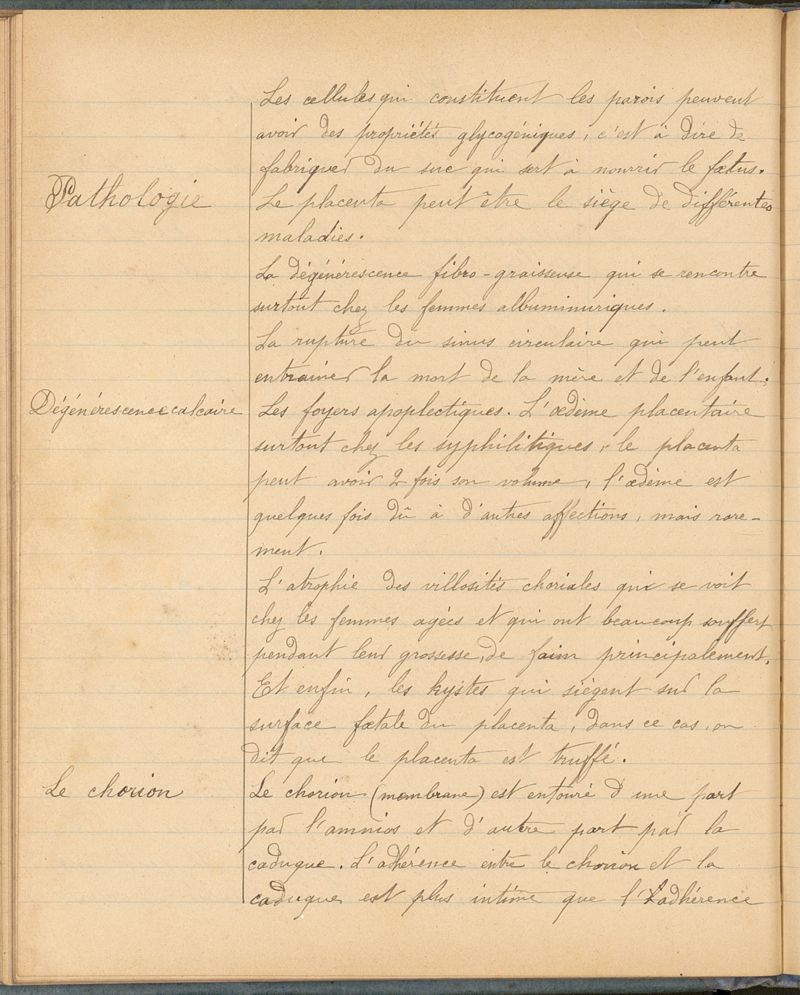 Les cellules qui constituent les parois peuvent
avoir des propriétés glycogéniques, c'est à dire de
fabriquer du suc qui sert à nourrir le fœtus.
Pathologie
Le placenta peut être le siège de différentes
maladies.
La dégénérescence fibro-graisseuse qui se rencontre
surtout chez les femmes albuminuriques.
La rupture du sinus circulaire qui peut
entrainer la mort de la mère et de l'enfant.
Dégénérescence calcaire
Les foyers apoplectiques. L'œdème placentaire
surtout chez les syphilitiques, le placenta
peut avoir 2 fois son volume, l'œdème est
quelques fois dû à d'autres affections, mais rare-
ment.
L'atrophie des villosités choriales qui se voit
chez les femmes agées et qui ont beaucoup souffert
pendant leur grossesse, de faim principalement.
Et enfin, les kystes qui siègent sur la
surface fœtale du placenta, dans ce cas, on
dit que le placenta est truffé.
Le chorion
Le chorion (membrane) est entouré d'une part
par l'amnios et d'autre part par la
caduque. L'adhérence entre le chorion et la
caduque est plus intime que l'adhérence